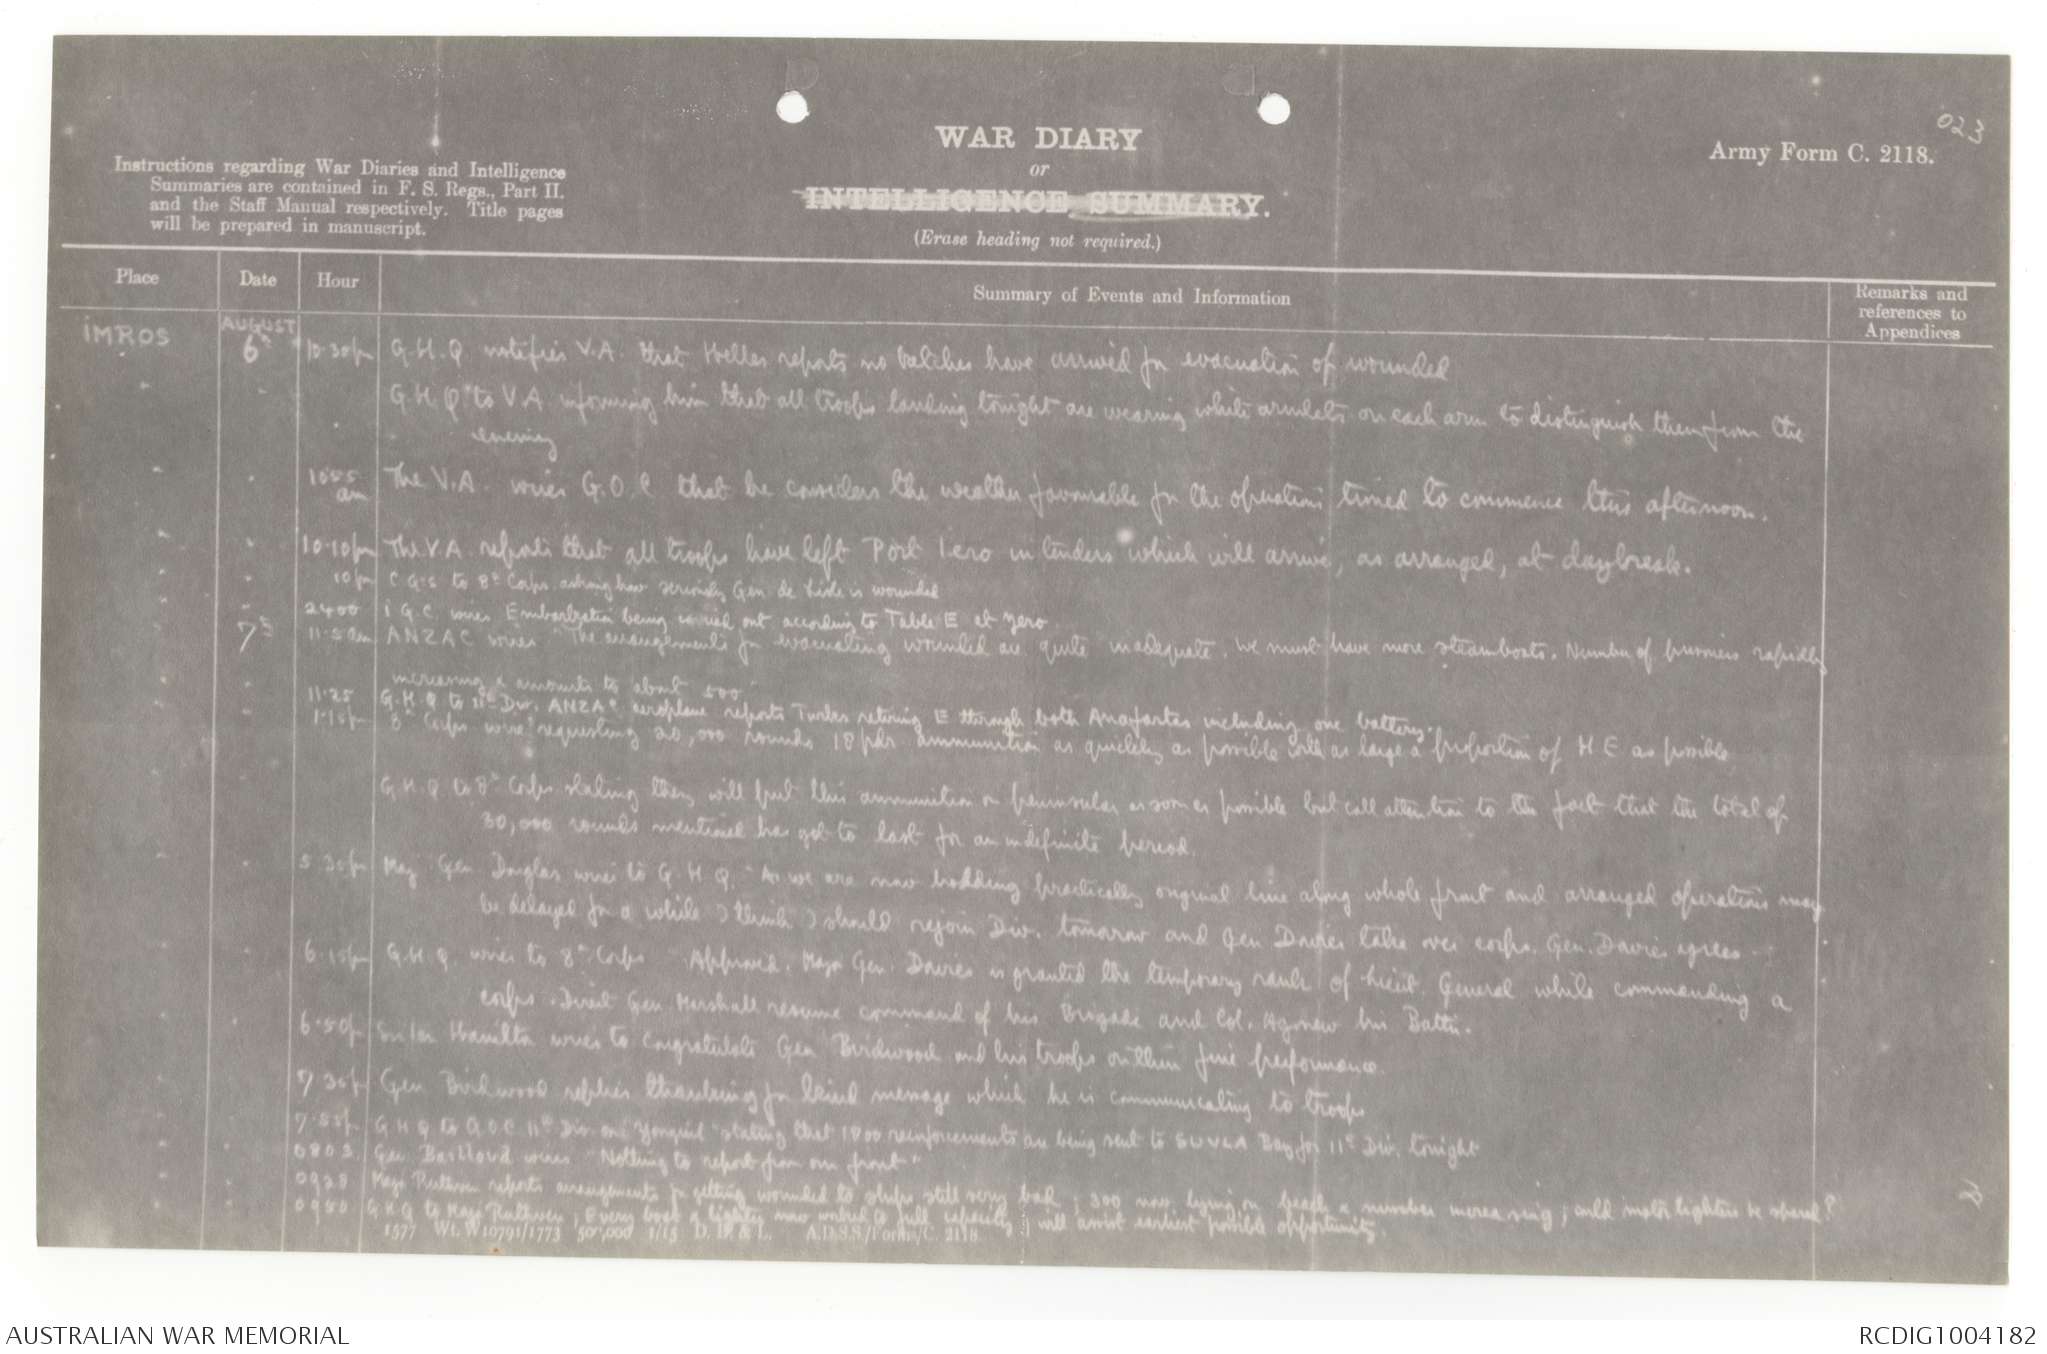 023
Army Form C. 2118.
WAR DIARY
or
INTELLIGENCE SUMMARY.
(Erase heading not required.)
Instructions regarding War Diaries and Intelligence
Summaries are contained in F. S. Regs., Part II.
and the Staff Manual respectively. Title pages
will be prepared in manuscript.
Place Date Hour Summary of Events and Information Remarks and references to Appendices
IMROS AUGUST 6th 10.30pm G.H.Q notifies V.A. that Helles reports no batches have arrived for evacuation of wounded
G.H.Q to V.A. informing him that all troops landing tonight are wearing white armlets on each arm to distinguish them from the
enemy
1055 am The V.A. wires G.O.C that he considers the weather favourable for the operations timed to commence this afternoon.
10.10pm The V.A. reports that all troops have left Port Iero in tenders which will arrive, as arranged, at daybreak.
10pm C.G.S to 8th Corps asking how seriously Gen de Lisle is wounded
2400 I.G.C. wires Embarkation being carried out according to Table E at zero.
7th 11.5am ANZAC wires "The arrangements for evacuating wounded are quite inadequate. We must have more steamboats. Number of prisoners rapidly
increasing & amounts to about 500."
11.25 G.H.Q to 11th Div, ANZAC aeroplane reports Turks retiring E through both Anafartas including one battery.
1.15pm 8th Corps wire requesting 20,000 rounds 18pdr ammunition as quickly as possible with as large a proportion of H E as possible
G.H.Q to 8th Corps stating they will put this ammunition on peninsular as soon as possible but call attention to the fact that the total of
30,000 rounds mentioned has got to last for an indefinite period.
5.30pm Maj. Gen Douglas wires to G.H.Q. "As we are now holding practically original line along whole front and arranged operations may
be delayed for a while I think I should rejoin Div. tomorrow and Gen Davies take over corps. Gen. Davies agrees
6.15pm G.H.Q. wires to 8th Corps Approved. Major Gen. Davies is granted the temporary rank of Lieut. General while commanding a
corps. Direct Gen Marshall resume command of his Brigade and Col. Agnew his Battn.
6.50p Sir Ian Hamilton wires to Congratulate Gen Birdwood and his troops on their fine performance.
7.30p Gen Birdwood replies thanking for kind message which he is communicating to troops
7.55p G H Q to G.O.C 11th Div. stating that 1800 reinforcements are being sent to SUVLA Bay for 11th Div. tonight
0803 Gen wires "Nothing to report from our front"
0928 Major Ruthven reports arrangements for getting wounded to ships still very bad; 300 now lying on beach & number increasing; could motor lighters be spared?
0950 G.H.Q to Maj Ruthven; Every boat & lighter now worked to full capacity; will assist earliest possible opportunity.
1577 Wt. W10791/1773 500,000 1/15 D. D. & L. A.D.S.S./Forms/C. 2118.
AUSTRALIAN WAR MEMORIAL
RCDIG1004182